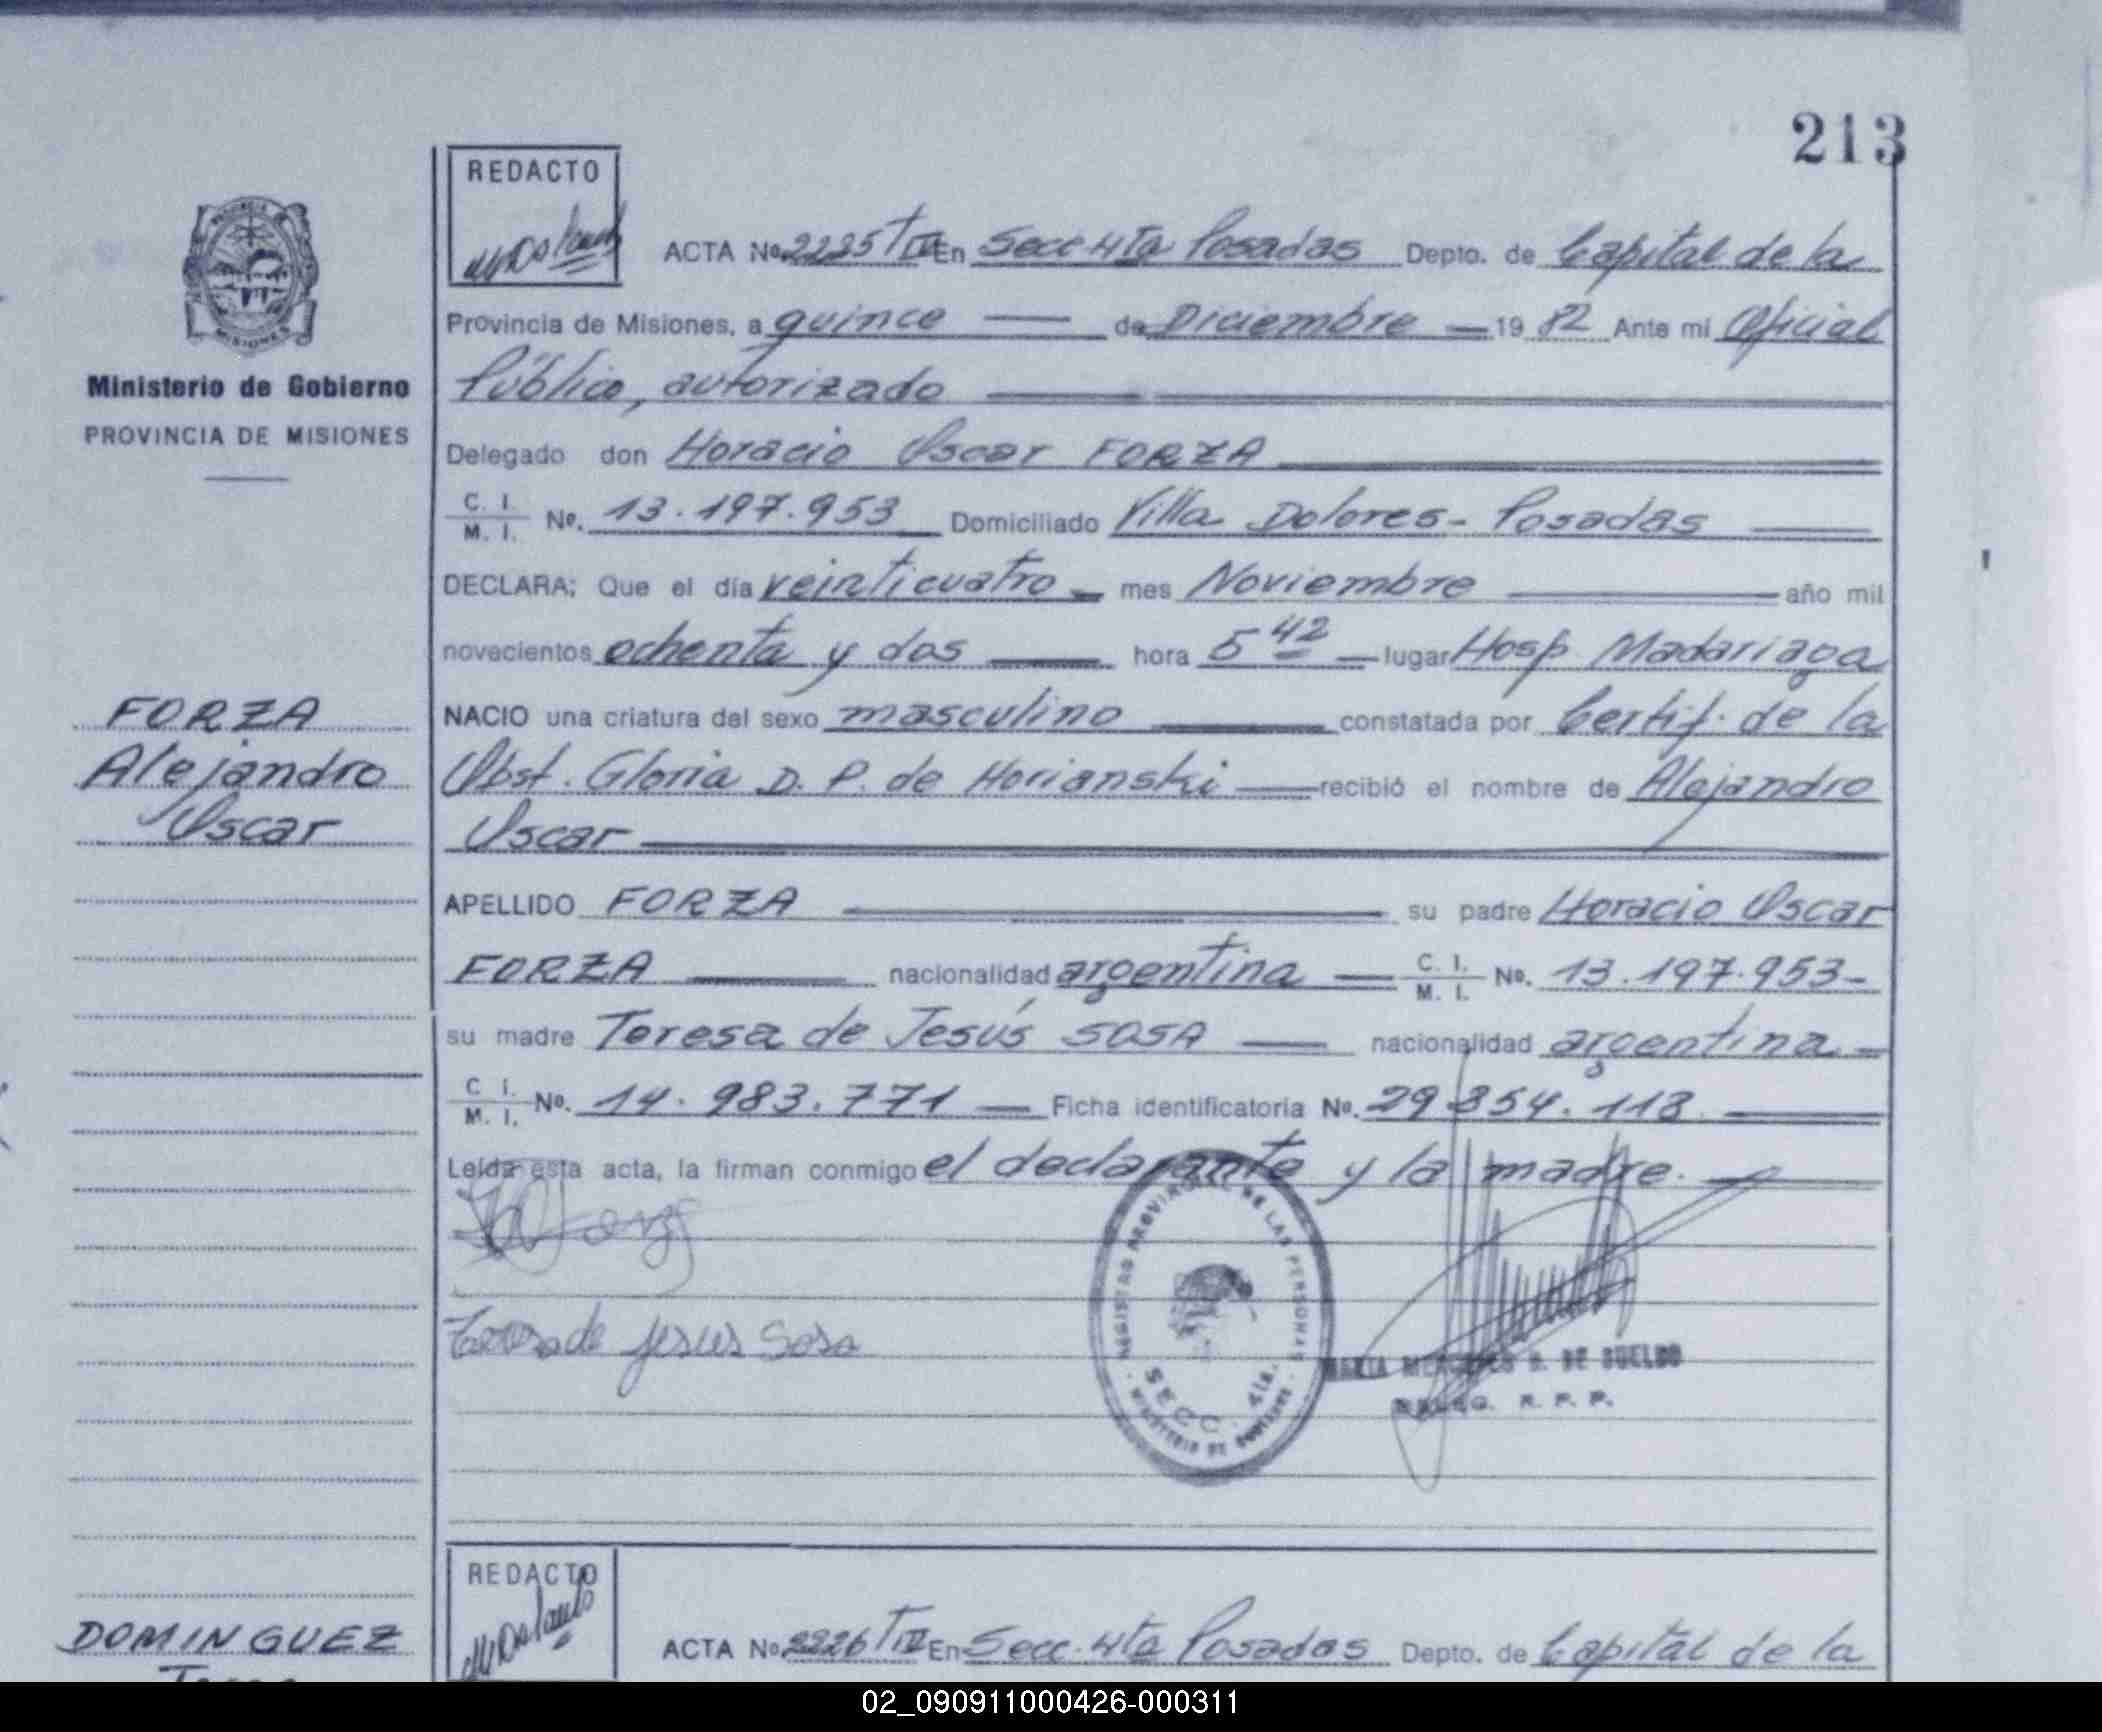 213
REDACTO
ACTA No. 2225 T IV En Secc 4ta Posadas Depto. de Capital de la
Provincia de Misiones, a quince de Diciembre 19 82 Ante mi Oficial
Público, autorizado
Delegado don Horacio Oscar FORZA
C. I.
M. I. No. 13.197.953 Domiciliado Villa Dolores - Posadas
DECLARA; Que el día veinticuatro mes Noviembre año mil
novecientos ochenta y dos hora 5 42 lugar Hosp. Madariaga
NACIO una criatura del sexo masculino constatada por Certif. de la
Obst. Gloria D. P. de Horianski recibió el nombre de Alejandro
Oscar
APELLIDO FORZA su padre Horacio Oscar
FORZA nacionalidad argentina C. I. M. I. No. 13.197.953-
su madre Teresa de Jesús SOSA nacionalidad argentina -
C. I.
M. I. No. 14.983.771 Ficha identificatoria No. 29.354.113
Leída esta acta, la firman conmigo el declarante y la madre.
Teresa de Jesus Sosa
REGISTRO PROVINCIAL DE LAS PERSONAS
SECC. 4ta.
MINISTERIO DE GOBIERNO
MARIA MERCEDES B. DE SUELDO
DELEG. R. P. P.
PROVINCIA DE
MISIONES
Ministerio de Gobierno
PROVINCIA DE MISIONES
FORZA
Alejandro
Oscar
REDACTO
ACTA No. 2226 T IV En Secc. 4ta Posadas Depto. de Capital de la
DOMINGUEZ
02_090911000426-000311